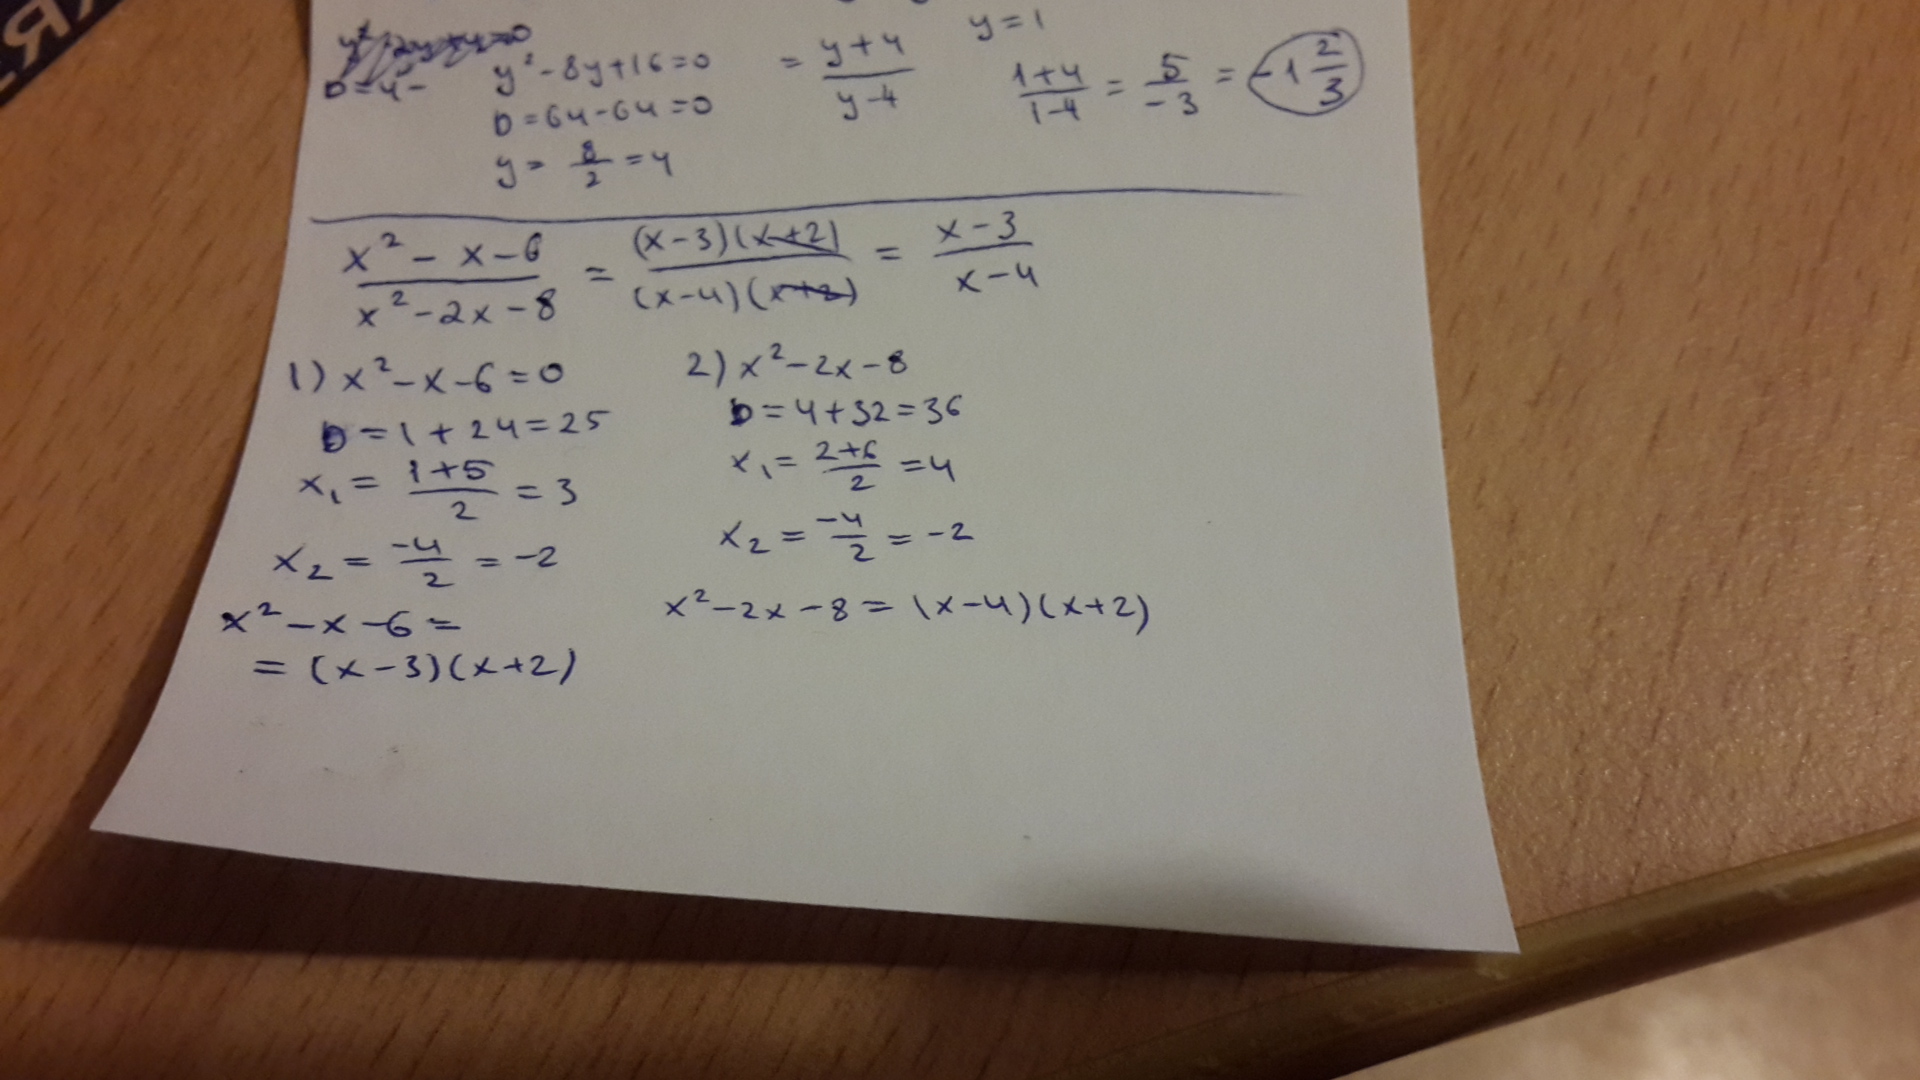 y² - 8y + 16 = 0
D = 4 -
D = 64 - 64 = 0
y = 8/2 = 4
= (y + 4)/(y - 4)
y = 1
(1 + 4)/(1 - 4) = 5/-3 = -1 2/3
(x² - x - 6)/(x² - 2x - 8) = ((x - 3)(x + 2))/((x - 4)(x + 2)) = (x - 3)/(x - 4)
1) x² - x - 6 = 0
D = 1 + 24 = 25
x₁ = (1 + 5)/2 = 3
x₂ = -4/2 = -2
x² - x - 6 =
= (x - 3)(x + 2)
2) x² - 2x - 8
D = 4 + 32 = 36
x₁ = (2 + 6)/2 = 4
x₂ = -4/2 = -2
x² - 2x - 8 = (x - 4)(x + 2)